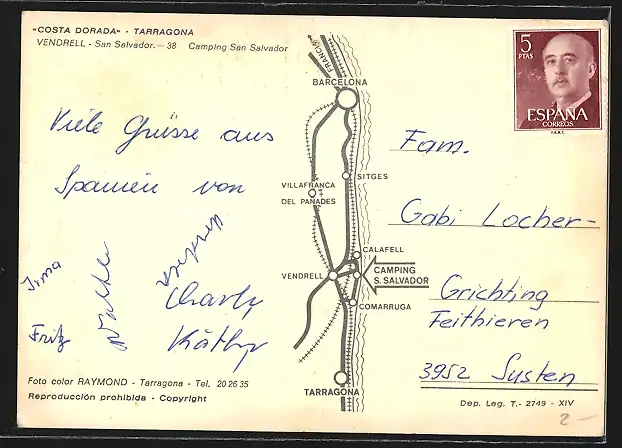 "COSTA DORADA" - TARRAGONA
VENDRELL - San Salvador. - 38 Camping San Salvador
Viele Grüsse aus
Spanien von
Irma
Walter
Charly
Fritz
Käthy
FRANCIA
BARCELONA
SITGES
VILLAFRANCA
DEL PANADES
CALAFELL
VENDRELL
CAMPING
S. SALVADOR
COMARRUGA
TARRAGONA
5
PTAS
ESPAÑA
CORREOS
Fam.
Gabi Locher-
Grichting
Feithieren
3952 Susten
Foto color RAYMOND - Tarragona - Tel. 20 26 35
Reproducción prohibida - Copyright
Dep. Leg. T. - 2749 - XIV
2 -